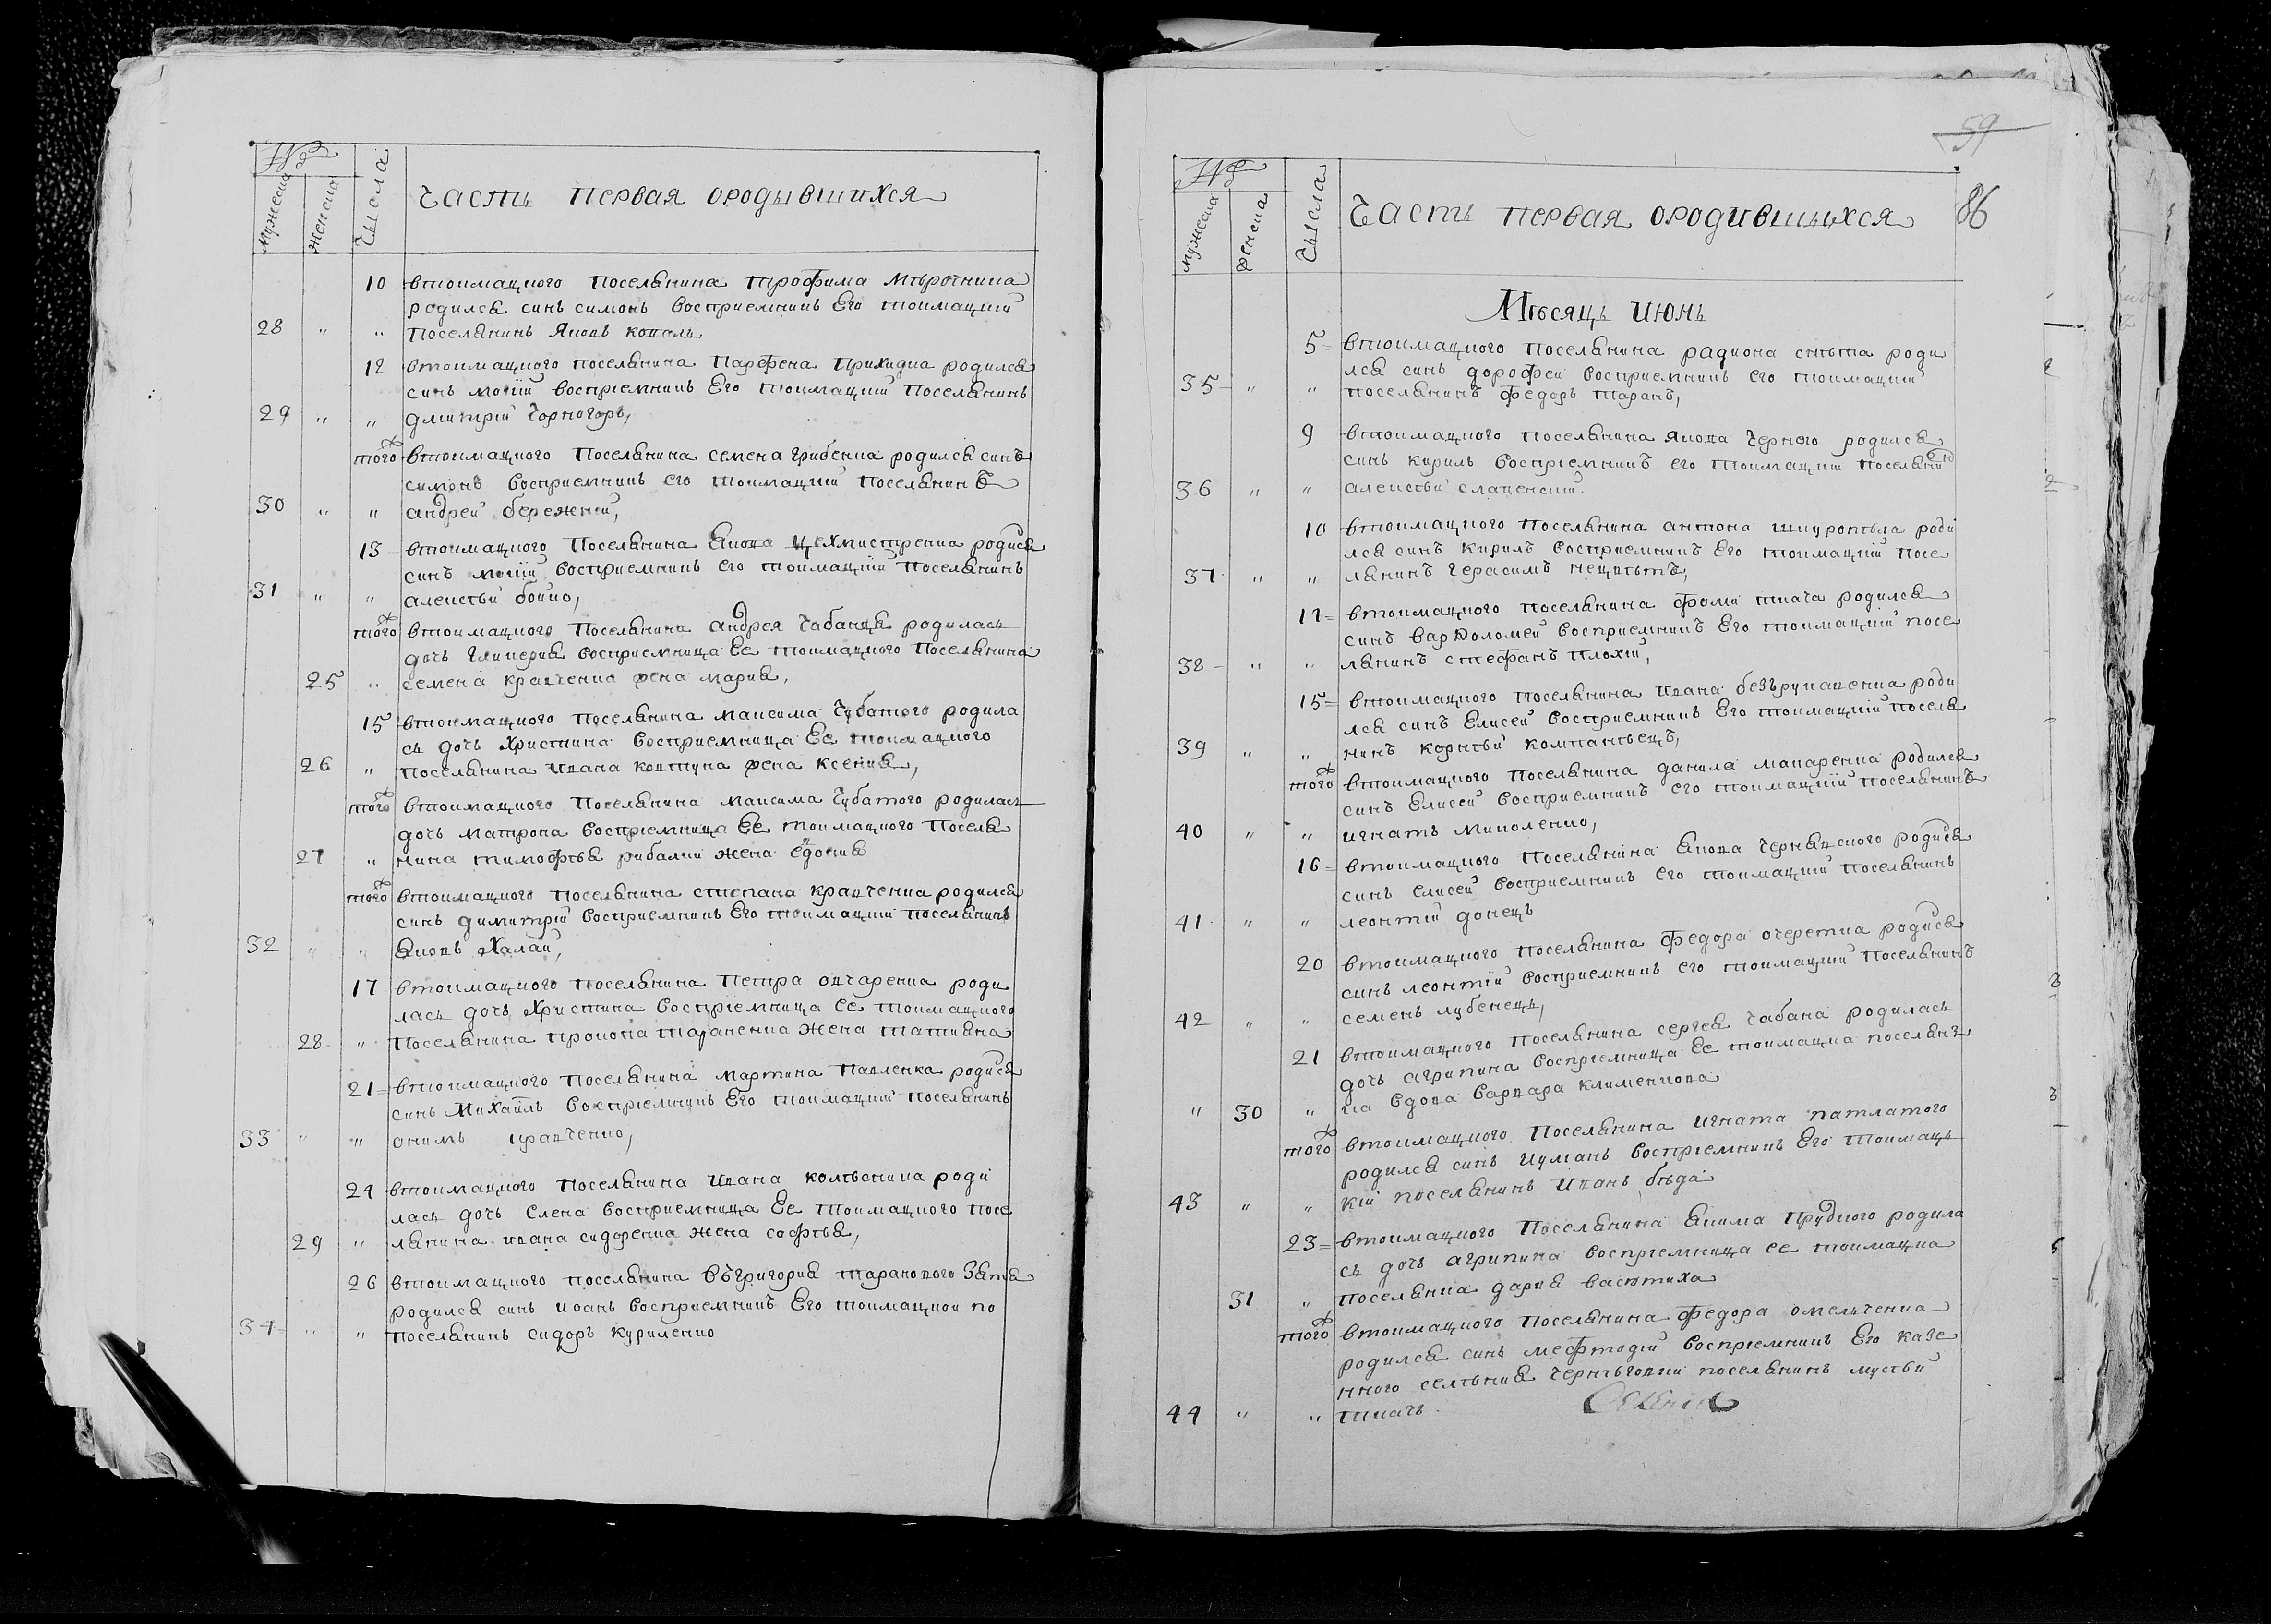 №
мужеска
женска
Числа
Часть первая ородывшихся
10 втокмацкого поселянина трофима мѣрочника
родился синъ симонъ восприемникъ Его токмацкий
28 " " поселянинъ Яковъ коваль
12 втокмацкого поселянина Парфена Прихидка родился
синъ мокiй восприемникъ Его токмацкий Поселянинъ
29 " " дмитрiй Чорногоръ,
тогож втокмацкого Поселянина семена грибенка родился синъ
симонъ восприемникъ его токмацкий поселянинъ
30 " " андрей бережний,
13 втокмацкого Поселянина Якова цехмистренка родися
синъ мокiй восприемникъ его токмацкiй поселянинъ
31 " " алексѣй бойко,
тогож втокмацкого Поселянина андрея Чабанця родилась
дочь Гликерия восприемница Ее токмацкого Поселянина
25 " семена кравченка жена мария,
15 втокмацкого поселянина максима Чубатого родила
сь дочь Христина восприемница Ее токмацкого
26 " поселянина Ивана ковтуна жена ксения,
тогож втокмацкого Поселянина максима Чубатого родилась
дочь матрона восприемница Ее токмацкого Поселя
27 " нина тимофѣя рибалки жена Евдокия
тогож втокмацкого поселянина степана кравченка родился
синъ димитрiй восприемникъ Его токмацкий поселянинъ
32 " " Яковъ Халай,
17 втокмацкого поселянина Петра овчаренка роди
лась дочь Христина восприемница Ее токмацкого
28 " Поселянина прокопа тараненка жена татияна
21 втокмацкого поселянина мартина Павленка родися
синъ Михаилъ восприемникъ Его токмацкий поселянинъ
33 " " якимъ кравченко,
24 втокмацкого поселянина Ивана колѣсника роди
лась дочь Елена восприемница Ее токмацкого посе
29 " лянина ивана сидоренка жена софѣя,
26 втокмацкого поселянина григория таранового Зятя
родился синъ иоанъ восприемникъ Его токмацкой по
34 " " поселянинъ сидоръ куриленко
59
86
№
мужеска
женска
Числа
Часть первая ородившихся
Мѣсяць Июнь
5 втокмацкого поселянина радиона снѣжка роди
лся синъ дорофей восприемникъ его токмацкий
35 " " поселянинъ федоръ таранъ,
9 втокмацкого поселянина якова Черного родился
синъ кирилъ восприемникъ его токмацкий поселянинъ
36 " " алексѣй славенский.
10 втокмацкого поселянина антона шкуропѣла роди
лся синъ кирилъ восприемникъ Его токмацкий посе
37 " " лянинъ герасимъ нецвѣтъ,
11 втокмацкого поселянина фоми ткача родился
синъ варѳоломей восприемникъ Его токмацкий посе
38 " " лянинъ стефанъ плохiй,
15 втокмацкого поселянина Ивана безърукавенка роди
лся синъ Елисей восприемникъ Его токмацкий поселя
39 " " нинъ корнѣй компанѣецъ,
тогож втокмацкого поселянина данила макаренка родился
синъ Елисей восприемникъ его токмацкий поселянинъ
40 " " игнатъ миколенко,
16 втокмацкого поселянина Якова Чернявского родися
синъ елисей восприемникъ его токмацкий поселянинъ
41 " " леонтий донецъ
20 втокмацкого поселянина федора очеретка родися
синъ леонтiй восприемникъ его токмацкий поселянинъ
42 " " семенъ лубенець,
21 втокмацкого поселянина сергея чабана родилась
дочь агрипина восприемница Ее токмацка поселян
" 30 " ка вдова варвара клименкова
тогож втокмацкого поселянина игната патлатого
родился синъ иулианъ восприемникъ Его токмацъ
43 " " кiй поселянинъ Иванъ бѣда
23 втокмацкого поселянина Якима Прудкого родила
сь дочь агрипина восприемница ее токмацка
31 " поселянка дария васютиха
тогож втокмацкого поселянина федора омельченка
родился синъ мефтодiй восприемникъ Его казе
нного селѣния чернѣговки поселянинъ мусѣй
44 " " ткачъ